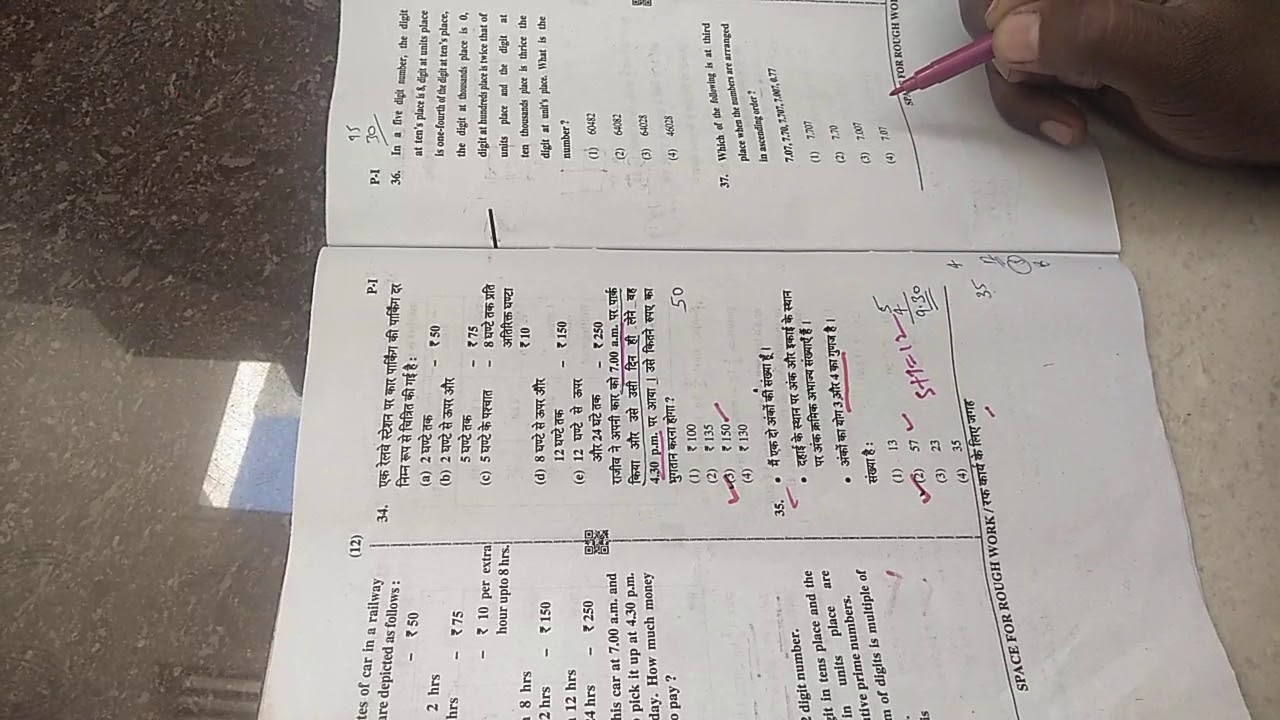 (12)
tes of car in a railway
are depicted as follows :
– ₹ 50
2 hrs
– ₹ 75
hrs
– ₹ 10 per extra
hour upto 8 hrs.
8 hrs
2 hrs – ₹ 150
12 hrs
4 hrs – ₹ 250
his car at 7.00 a.m. and
pick it up at 4.30 p.m.
day. How much money
o pay ?
2 digit number.
git in tens place and the
in units place are
utive prime numbers.
m of digits is multiple of
is
SPACE FOR ROUGH WORK / रफ कार्य के लिए जगह
P-I
34. एक रेलवे स्टेशन पर कार पार्किंग की पार्किंग दर
निम्न रूप से चित्रित की गई है :
(a) 2 घण्टे तक – ₹ 50
(b) 2 घण्टे से ऊपर और
5 घण्टे तक – ₹ 75
(c) 5 घण्टे के पश्चात – 8 घण्टे तक प्रति
अतिरिक्त घण्टा
₹ 10
(d) 8 घण्टे से ऊपर और
12 घण्टे तक – ₹ 150
(e) 12 घण्टे से ऊपर
और 24 घंटे तक – ₹ 250
राजीव ने अपनी कार को 7.00 a.m. पर पार्क
किया और उसे उसी दिन ही लेने वह
4.30 p.m. पर आया । उसे कितने रुपए का
भुगतान करना होगा ?
50
(1) ₹ 100
(2) ₹ 135
(3) ₹ 150
(4) ₹ 130
35. • मैं एक दो अंकों की संख्या हूँ ।
• दहाई के स्थान पर अंक और इकाई के स्थान
पर अंक क्रमिक अभाज्य संख्याएँ हैं ।
• अंकों का योग 3 और 4 का गुणज है ।
संख्या है :
(1) 13
(2) 57
5+7=12
(3) 23
(4) 35
9.30
35
P-I
15
30
36. In a five digit number, the digit
at ten's place is 8, digit at units place
is one-fourth of the digit at ten's place,
the digit at thousands place is 0,
digit at hundreds place is twice that of
units place and the digit at
ten thousands place is thrice the
digit at unit's place. What is the
number ?
(1) 60482
(2) 64082
(3) 64028
(4) 46028
37. Which of the following is at third
place when the numbers are arranged
in ascending order ?
7.07, 7.70, 7.707, 7.007, 0.77
(1) 7.707
(2) 7.70
(3) 7.007
(4) 7.07
FOR ROUGH WO